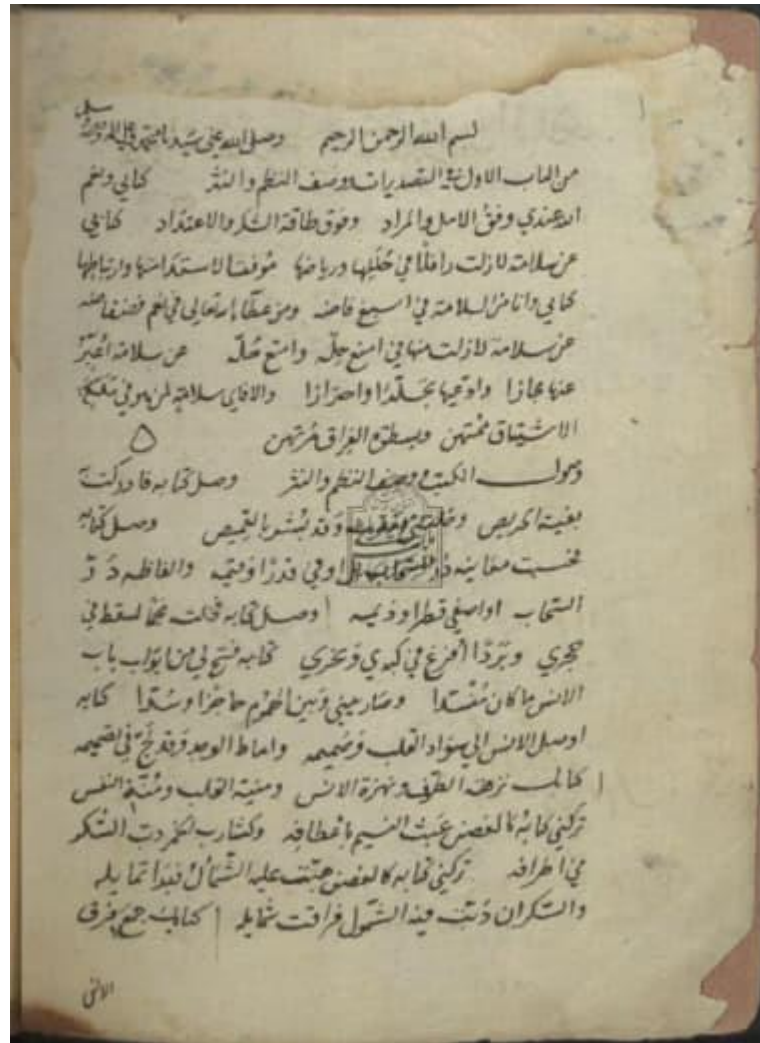 بسم الله الرحمن الرحيم وصلى الله على سيدنا محمد وآله وسلم
من الباب الاول في التصديرات ووصف النظم والنثر كتابي ونعم
الله عندي وفق الامل والمراد وفوق طاقة الشكر والاعتداد كتابي
عن سلامة لازلت رافلا في حللها ورياضها موفقا لاستدامتها وارتباطها
كتابي وانا من السلامة في اسبغ
عن سلامة لازلت منها في امنع حلة وامتع عن سلامة اعبر
عنها مجازا وادعيها تجلدا واحترازا والا فاي سلامة لمن هو في
الاشتياق ممتهن وبسطوة الفراق مرتهن
وصول الكتب ووصف النظم والنثر وصل كتابه فادركت
بغية الحريص وقد بشر بالقميص وصل كتابه
فحسبت معانيه او في قدرا وقيمه والفاظه در
السحاب او اصفى قطرا وديمه وصل كتابه فخلت نجما سقط في
حجري وبردا افرغ في كبدي ونحري كتابه فتح لي من ابواب باب
الانس ما كان منسدا وصار بيني وبين الهموم حاجزا وسدا كتابه
اوصل الانس الى سواد القلب وصميمه واماط
كتابك نزهة الطرف ونهزة الانس ومنية القلب ومنة النفس
تركني كتابه كالغصن عبث النسيم باعطافه وكشارب الخمر دب السكر
في اطرافه تركني كتابه كالغصن هبت عليه الشمال فبدا تمايله
والسكران دبت فيه الشمول فراقت شمايله كتابك جمع فرق
الانس